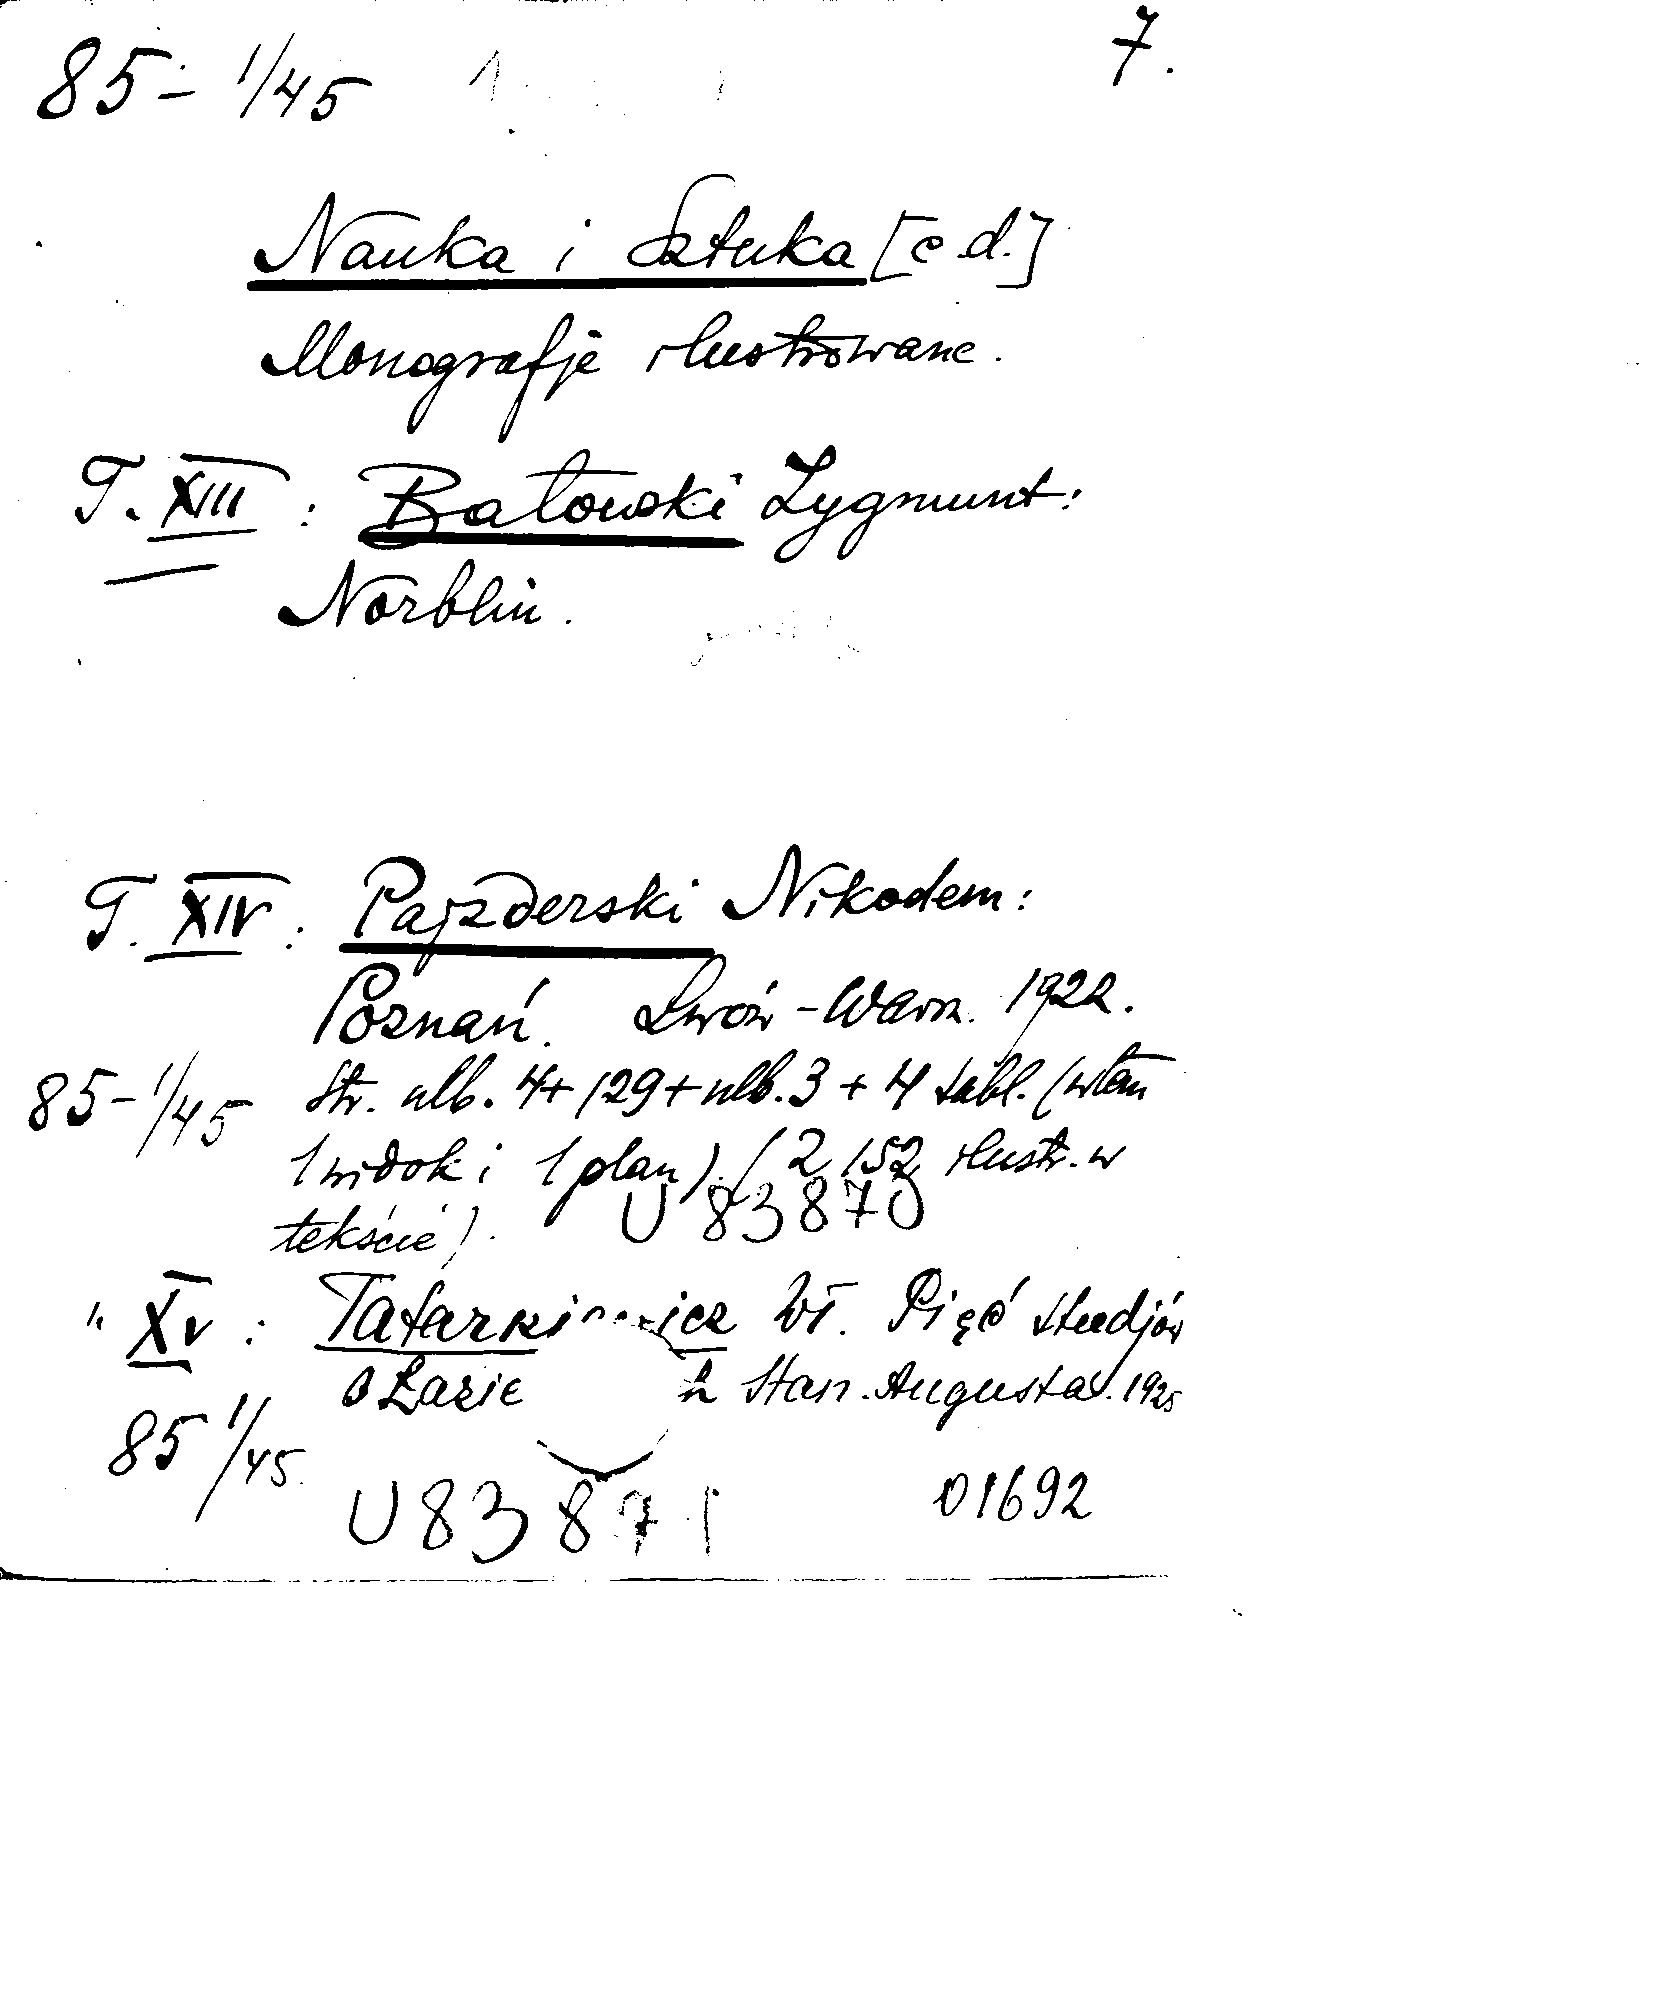 85 - 1/45 7.
Nauka i Sztuka [c.d.]
Monografje ilustrowane.
T. XIII : Batowski Zygmunt:
Norblin.
T. XIV : Pajzderski Nikodem:
Poznań. Lwów - Warsz. 1922.
85 - 1/45 Str. nlb. 4 + 129 + nlb. 3 + 4 tabl. (w tem
1 widok i 1 plan). (Z 152 ilustr. w
tekście). U 83870
" XV : Tatarkiewicz Wł. Pięć studjów
o Łazie h Stan. Augusta. 1925
85 1/45
U 83871 01692